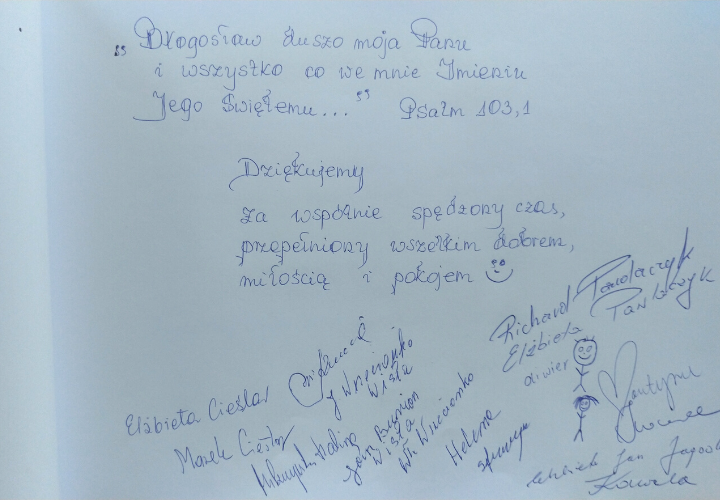 "Błogosław duszo moja Panu
i wszystko co we mnie Imieniu
Jego Świętemu..." Psalm 103,1
Dziękujemy
za wspólnie spędzony czas,
przepełniony wszelkim dobrem,
miłością i pokojem
Richard Pawlaczyk
Elżbieta Pawlaczyk
Oliwier
Elżbieta Cieślar
Marek Cieślar
Wisła
Wisła
Helena
Jan
Kowala